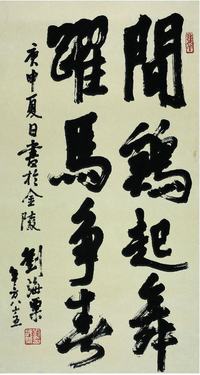 聞鷄起舞
躍馬争春
庚申夏日書於金陵
劉海粟
年方八十五